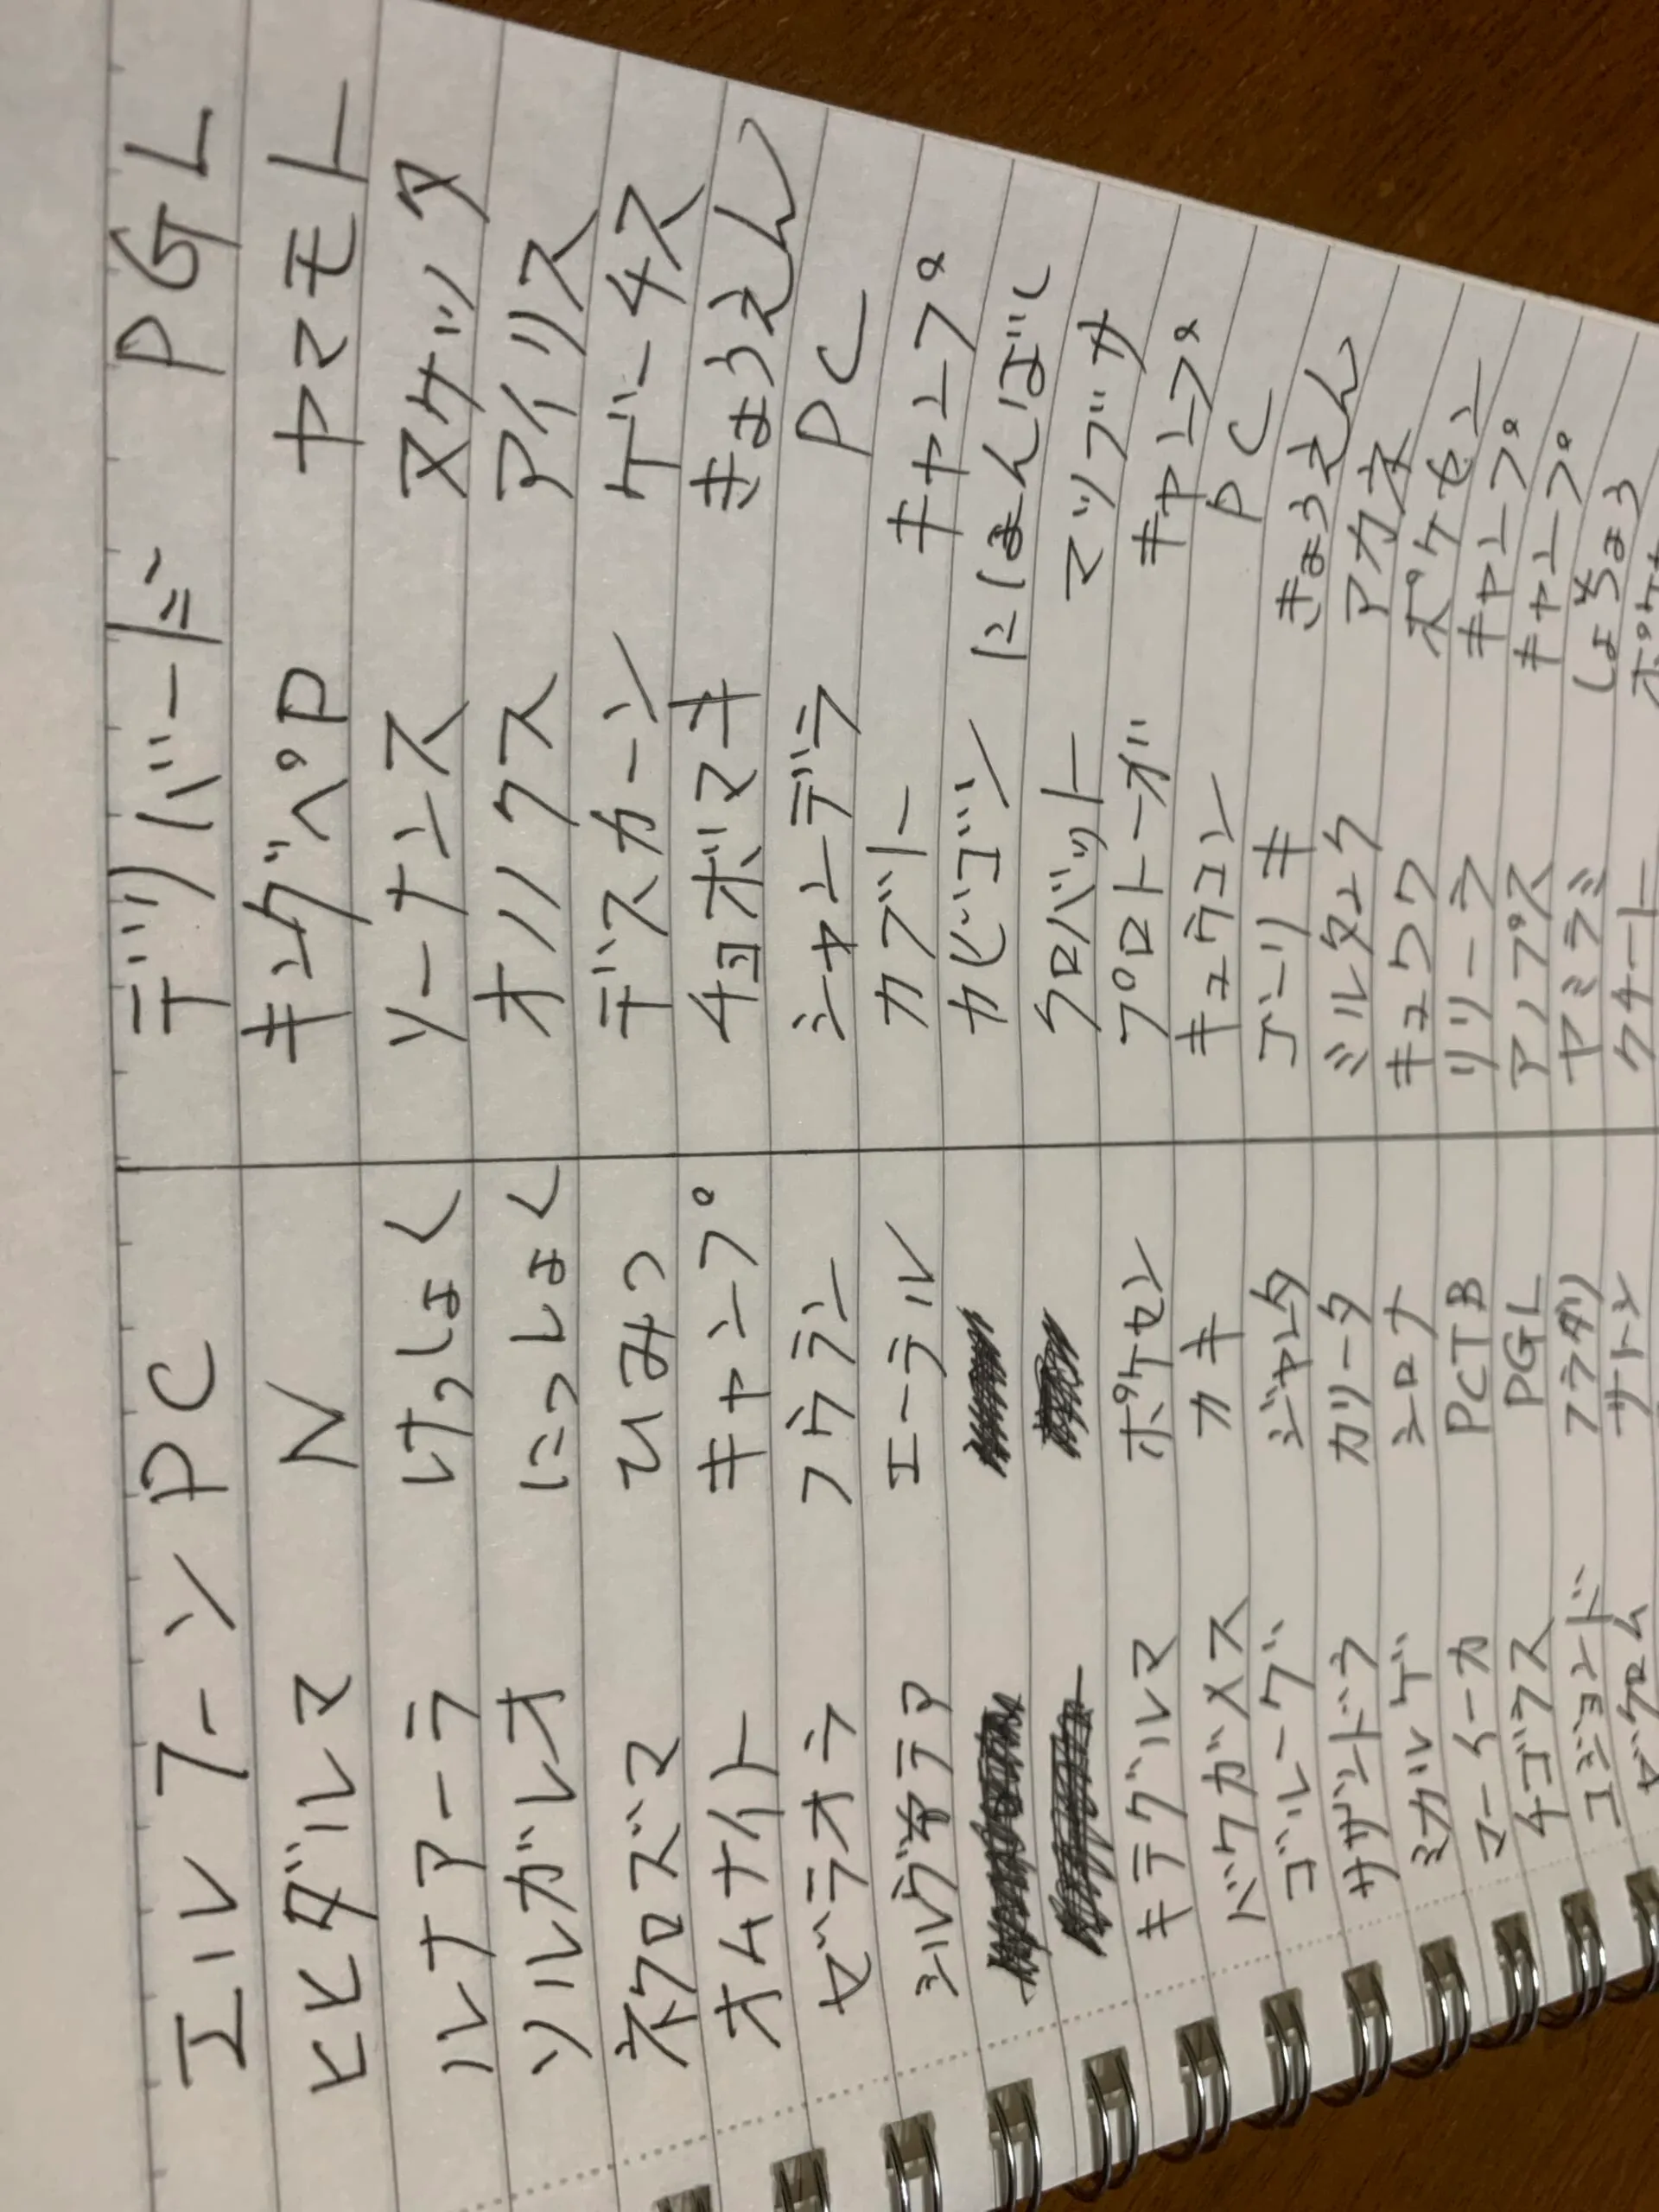 エルフーン PC デリバード PGL
ヒヒダルマ N キングペP ヤマモト
ルナアーラ けっしょく ソーナンス ヌケッタ
ソルガレオ にっしょく オノノクス アイリス
ネクロズマ ひみつ デスカーン ゲーチス
オムナイト キャンプ チョボマキ きょうえん
ゼラオラ フウラン シャンデラ PC
シルヴァディ エーテル カブトー キャンプ
カビゴン にほんばし
クロバット マツブカ
キテグルマ ポケセン プロトーガ キャンプ
バクガメス カキ キュウコン PC
ゴルーグ ジャレタ ゴーリキ きょうえん
サザンドラ カリータ ミルタンク アカネ
ミカルゲ シロナ キュワワ ポケセン
マーイーカ PCTB リリーラ キャンプ
チゴラス PGL アノプス キャンプ
コジョンド フラダリ ヤミラミ しょうちょう
ゼクロム サトシ クチート